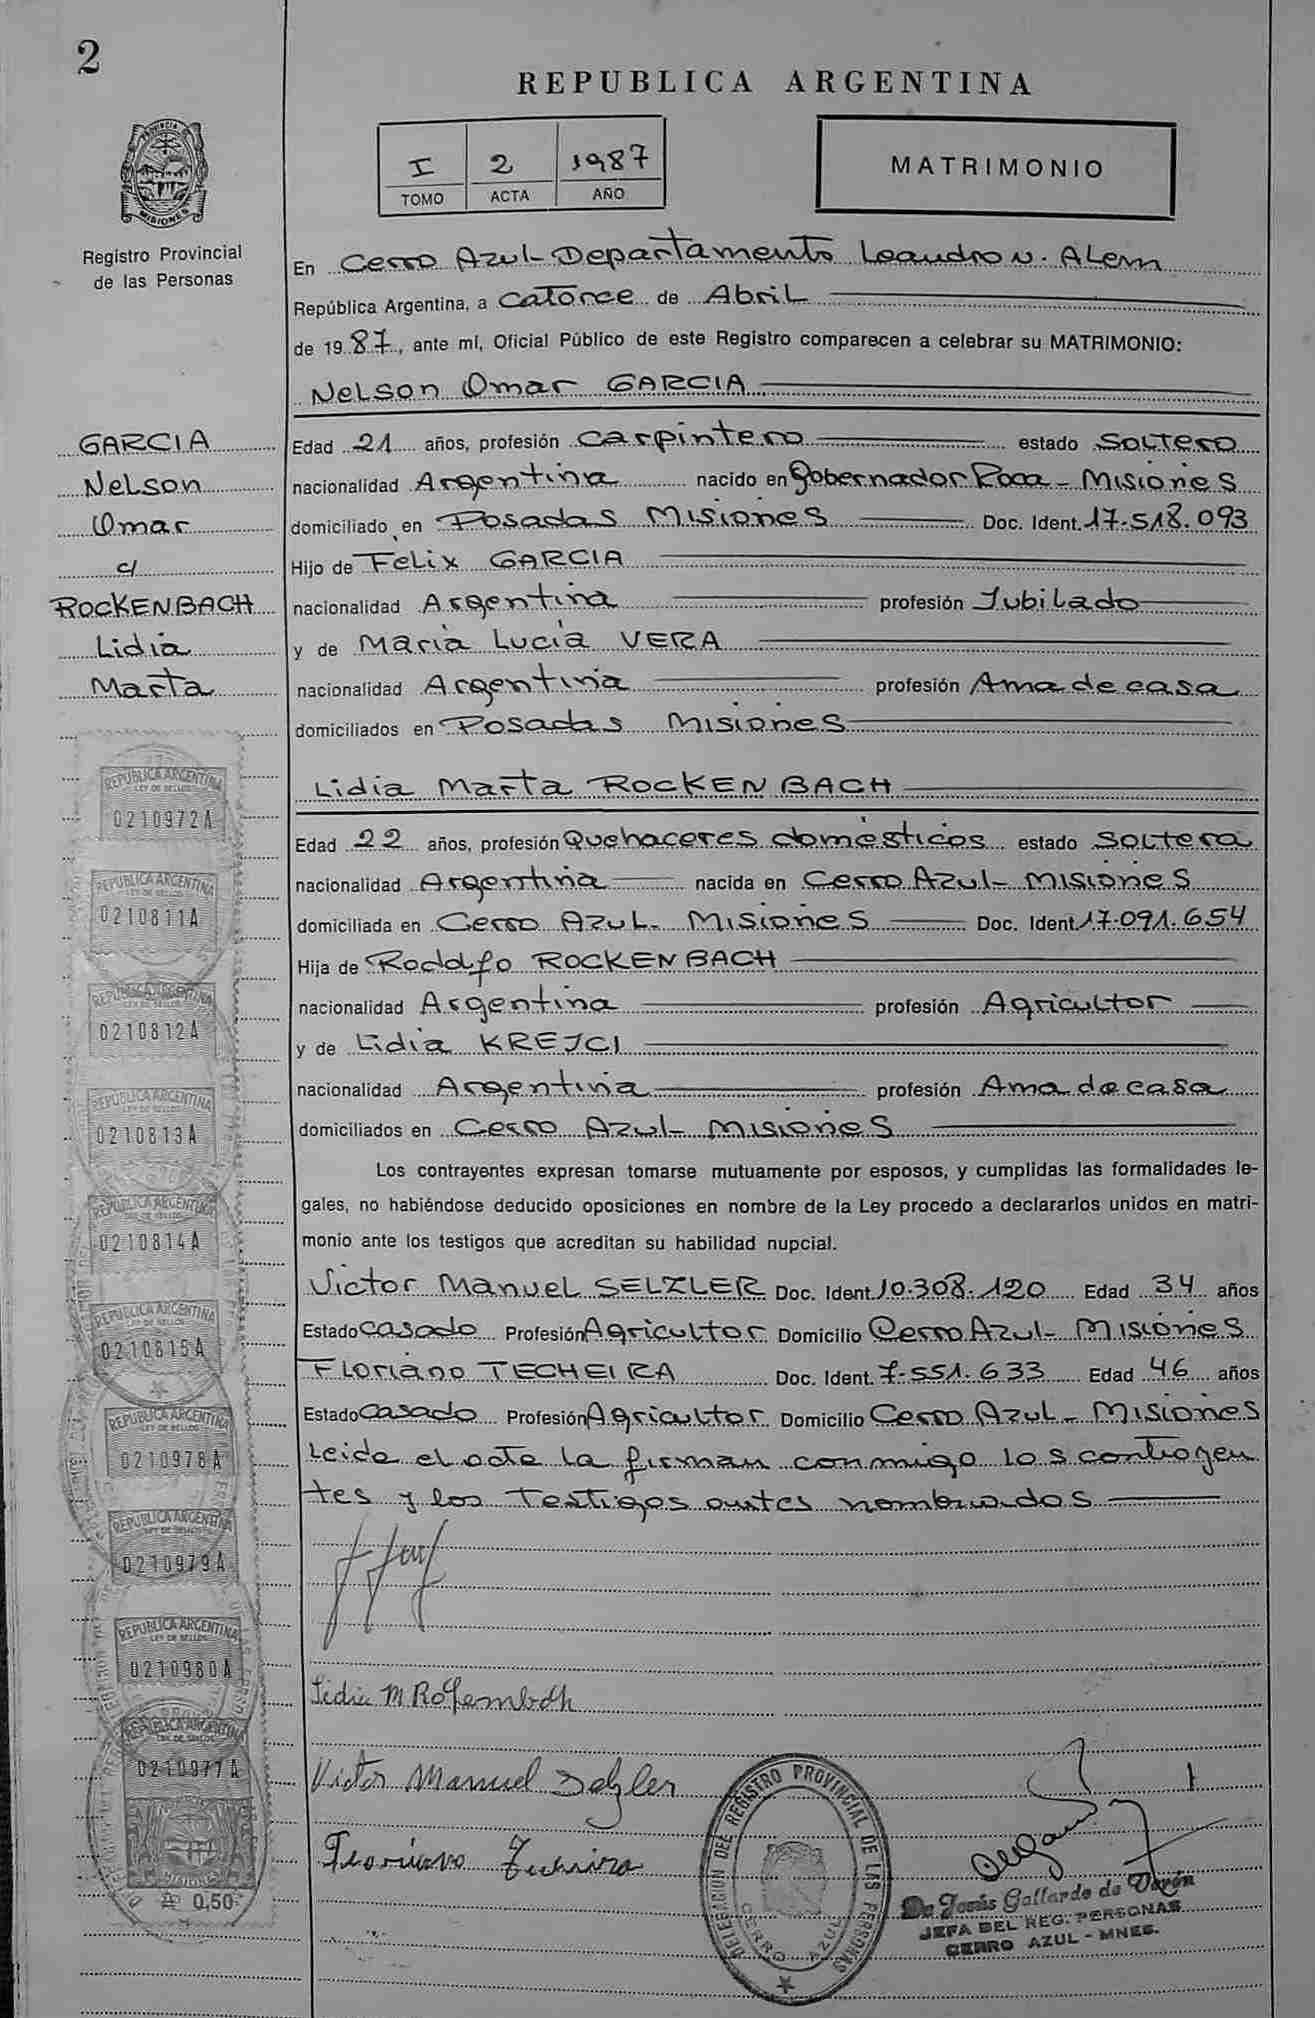 2
REPUBLICA ARGENTINA
PROVINCIA DE MISIONES
Registro Provincial
de las Personas
I 2 1987
TOMO ACTA AÑO
MATRIMONIO
En Cerro Azul-Departamento Leandro N. Alem
República Argentina, a catorce de Abril
de 1987, ante mí, Oficial Público de este Registro comparecen a celebrar su MATRIMONIO:
Nelson Omar GARCIA
GARCIA
Nelson
Omar
c/
ROCKENBACH
Lidia
Marta
Edad 21 años, profesión carpintero estado soltero
nacionalidad Argentina nacido en Gobernador Roca - Misiones
domiciliado en Posadas Misiones Doc. Ident. 17.518.093
Hijo de Felix GARCIA
nacionalidad Argentina profesión Jubilado
y de Maria Lucia VERA
nacionalidad Argentina profesión Ama de casa
domiciliados en Posadas Misiones
Lidia Marta ROCKENBACH
Edad 22 años, profesión Quehaceres domésticos estado soltera
nacionalidad Argentina nacida en Cerro Azul- Misiones
domiciliada en Cerro Azul- Misiones Doc. Ident. 17.091.654
Hija de Rodolfo ROCKENBACH
nacionalidad Argentina profesión Agricultor
y de Lidia KREJCI
nacionalidad Argentina profesión Ama de casa
domiciliados en Cerro Azul- Misiones
Los contrayentes expresan tomarse mutuamente por esposos, y cumplidas las formalidades le-
gales, no habiéndose deducido oposiciones en nombre de la Ley procedo a declararlos unidos en matri-
monio ante los testigos que acreditan su habilidad nupcial.
Victor Manuel SELZLER Doc. Ident. 10.308.120 Edad 34 años
Estado casado Profesión Agricultor Domicilio Cerro Azul- Misiones
Floriano TECHEIRA Doc. Ident. 7.551.633 Edad 46 años
Estado casado Profesión Agricultor Domicilio Cerro Azul- Misiones
Leida el acta la firman conmigo los contrayen
tes y los testigos antes nombrados
REPUBLICA ARGENTINA
LEY DE SELLOS
0210972A
REPUBLICA ARGENTINA
LEY DE SELLOS
0210811A
REPUBLICA ARGENTINA
LEY DE SELLOS
0210812A
REPUBLICA ARGENTINA
LEY DE SELLOS
0210813A
REPUBLICA ARGENTINA
LEY DE SELLOS
0210814A
REPUBLICA ARGENTINA
LEY DE SELLOS
0210815A
REPUBLICA ARGENTINA
LEY DE SELLOS
0210978A
REPUBLICA ARGENTINA
LEY DE SELLOS
0210979A
REPUBLICA ARGENTINA
LEY DE SELLOS
0210980A
REPUBLICA ARGENTINA
LEY DE SELLOS
0210977A
MISIONES
0,50
Victor Manuel Selzler
DELEGACION DEL REGISTRO PROVINCIAL DE LAS PERSONAS
CERRO AZUL
Jesús Gallardo de Verón
JEFA DEL REG. PERSONAS
CERRO AZUL - MNES.